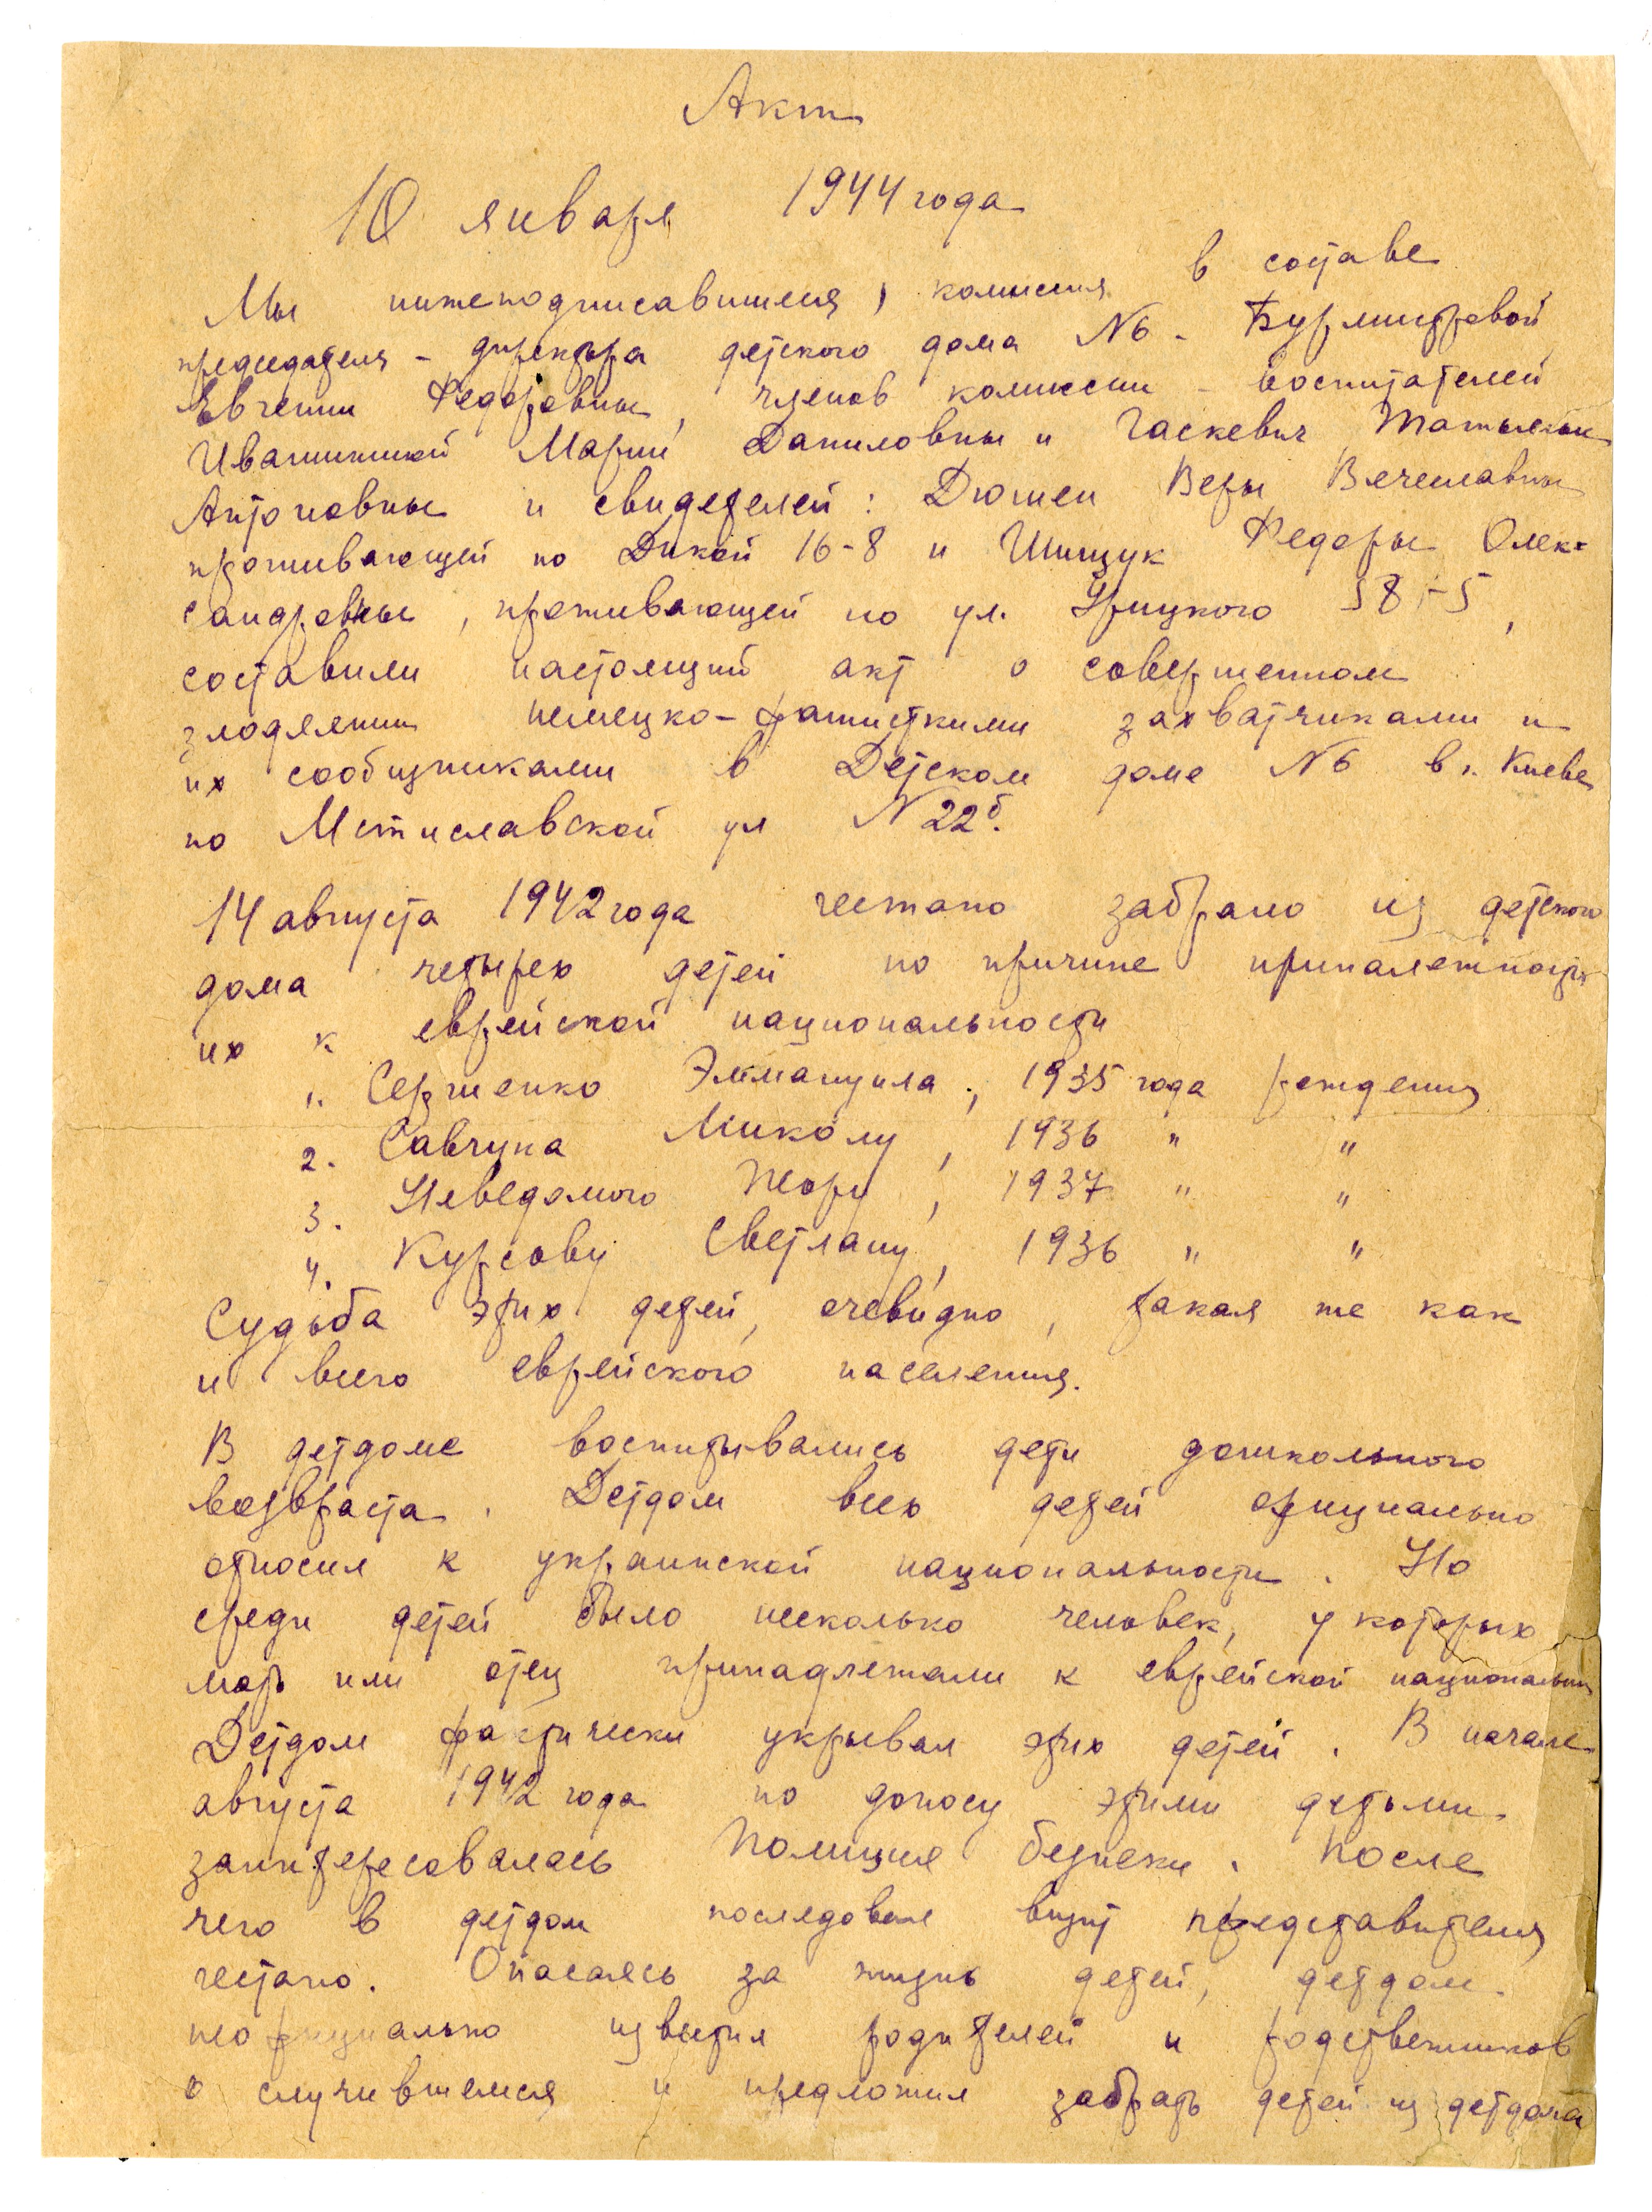 Акт
10 января 1944 года
Мы нижеподписавшиеся, комиссия в составе
председателя - директора детского дома №6 - Бурмистровой
Евгении Федоровны, членов комиссии - воспитателей
Марии Даниловны и Гаскевич Татьяны
Антоновны и свидетелей: Дюжей Веры Вечеславны
проживающей по Дикой 16-8 и Шищук Федоры Олек=
сандровны, проживающей по ул. Урицкого 58-5,
составили настоящий акт о совершенном
злодеянии немецко-фашисткими захватчиками и
их сообщниками в Детском доме №6 в г. Киеве
по Мстиславской ул N 22б.
14 августа 1942 года гестапо забрало из детского
дома четырех детей по причине
их к еврейской национальности
1. Сергиенко Эммануила, 1935 года рождения
2. Савчука Миколу, 1936 " "
3. Неведомого Жору, 1937 " "
4. Курсову Светлану, 1936 " "
Судьба этих детей, очевидно, такая же как
и всего еврейского населения.
В детдоме воспитывались дети дошкольного
возвраста. Детдом всех детей официально
относил к украинской национальности. Но
среди детей было несколько человек, у которых
мать или отец принадлежали к еврейской
Детдом фактически укрывал этих детей. В начале
августа 1942 года по доносу этими детьми
заинтересовалась Полиция безпеки. После
чего в детдом последовал визит представителя
гестапо. Опасаясь за жизнь детей, детдом
неофициально известил родителей и родственников
о случившемся и предложил забрать детей из детдома